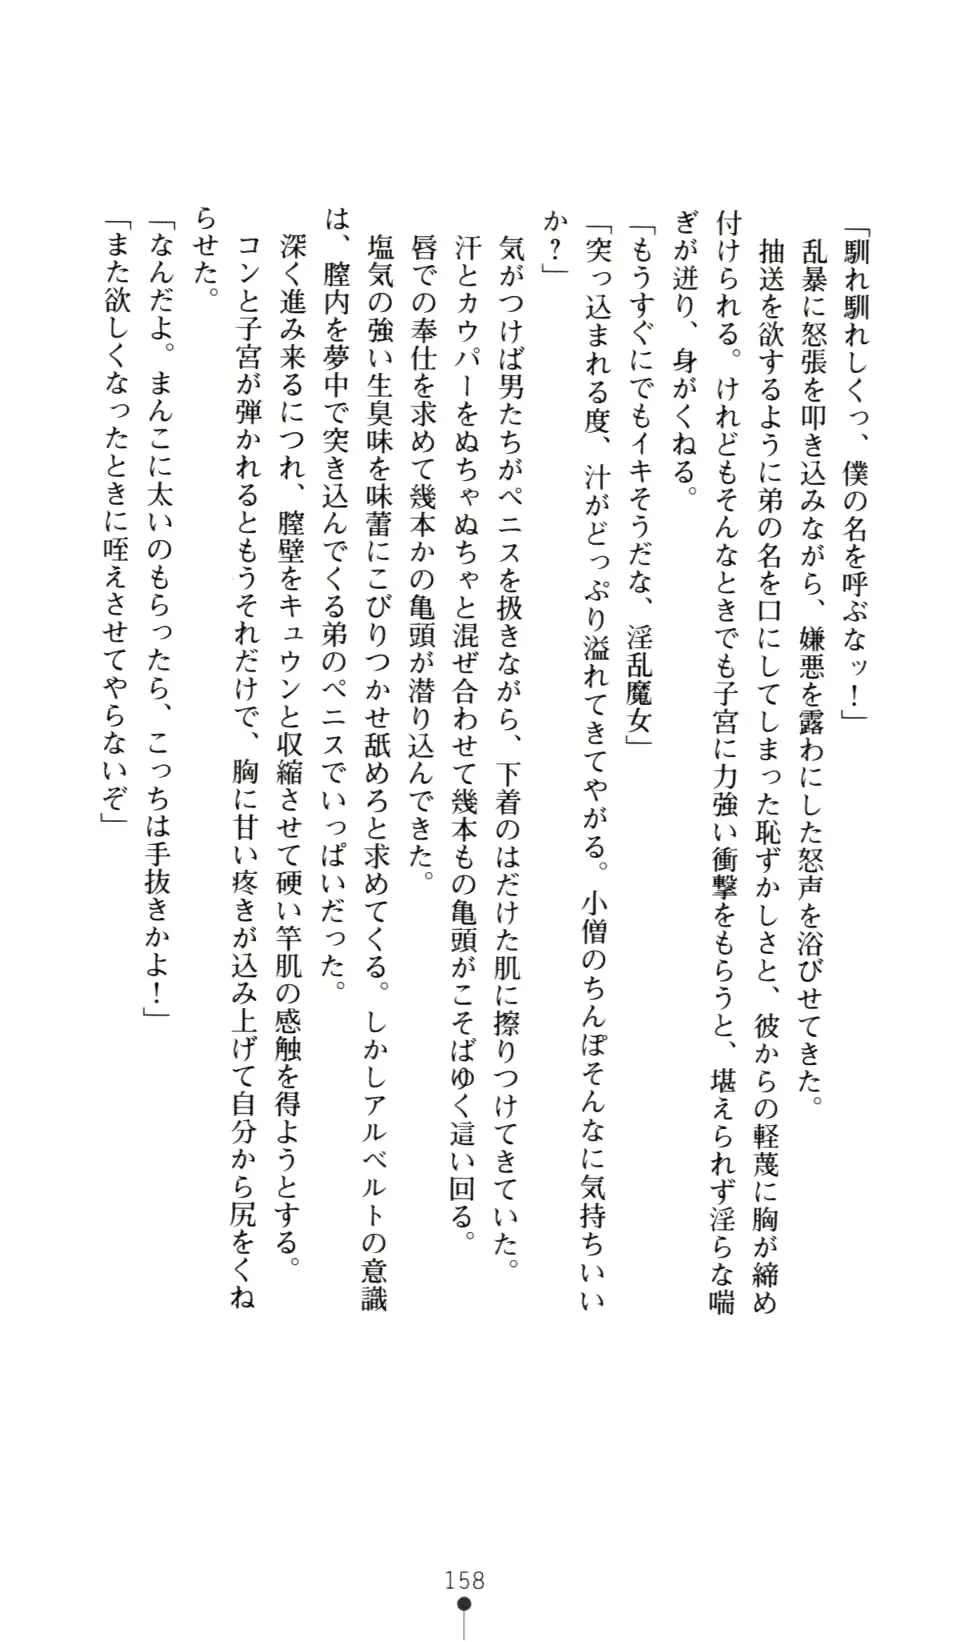 「馴れ馴れしくっ、僕の名を呼ぶなッ！」
乱暴に怒張を叩き込みながら、嫌悪を露わにした怒声を浴びせてきた。
抽送を欲するように弟の名を口にしてしまった恥ずかしさと、彼からの軽蔑に胸が締め
付けられる。けれどもそんなときでも子宮に力強い衝撃をもらうと、堪えられず淫らな喘
ぎが迸り、身がくねる。
「もうすぐにでもイキそうだな、淫乱魔女」
「突っ込まれる度、汁がどっぷり溢れてきてやがる。小僧のちんぽそんなに気持ちいい
か？」
気がつけば男たちがペニスを扱きながら、下着のはだけた肌に擦りつけてきていた。
汗とカウパーをぬちゃぬちゃと混ぜ合わせて幾本もの亀頭がこそばゆく這い回る。
唇での奉仕を求めて幾本かの亀頭が潜り込んできた。
塩気の強い生臭味を味蕾にこびりつかせ舐めろと求めてくる。しかしアルベルトの意識
は、膣内を夢中で突き込んでくる弟のペニスでいっぱいだった。
深く進み来るにつれ、膣壁をキュウンと収縮させて硬い竿肌の感触を得ようとする。
コンと子宮が弾かれるともうそれだけで、胸に甘い疼きが込み上げて自分から尻をくね
らせた。
「なんだよ。まんこに太いのもらったら、こっちは手抜きかよ！」
「また欲しくなったときに咥えさせてやらないぞ」
158